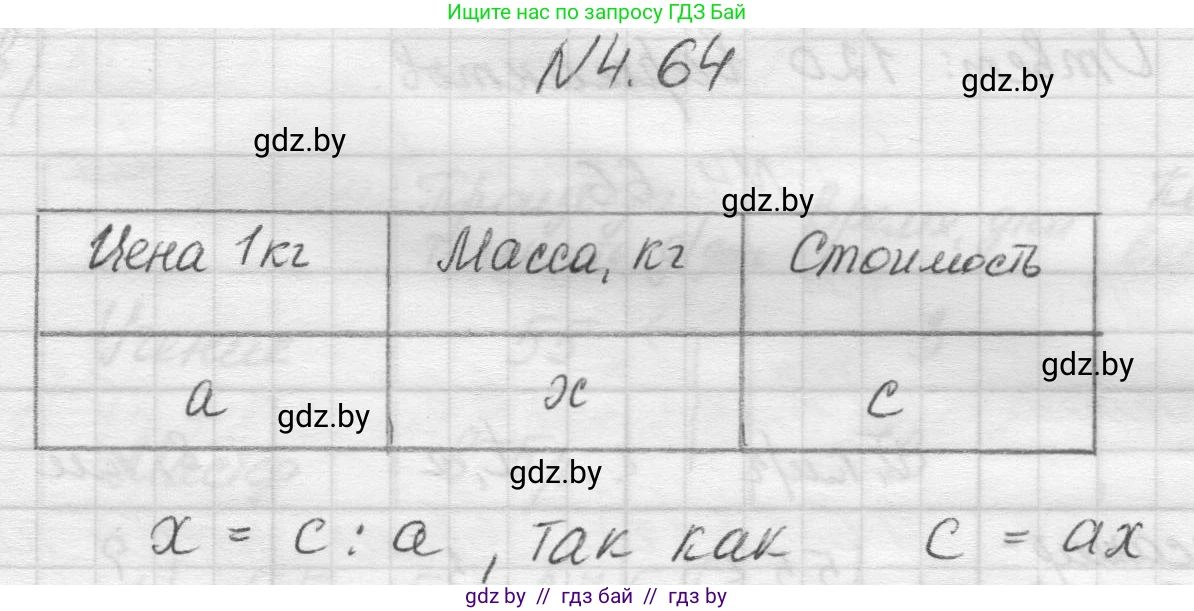 Ищите нас по запросу ГДЗ Бай
N4.64
gdz.by
gdz.by
gdz.by
Цена 1кг Масса, кг Стоимость
gdz.by
a x c
gdz.by
gdz.by
x = c : a , так как c = ax
gdz.by // гдз бай // гдз by